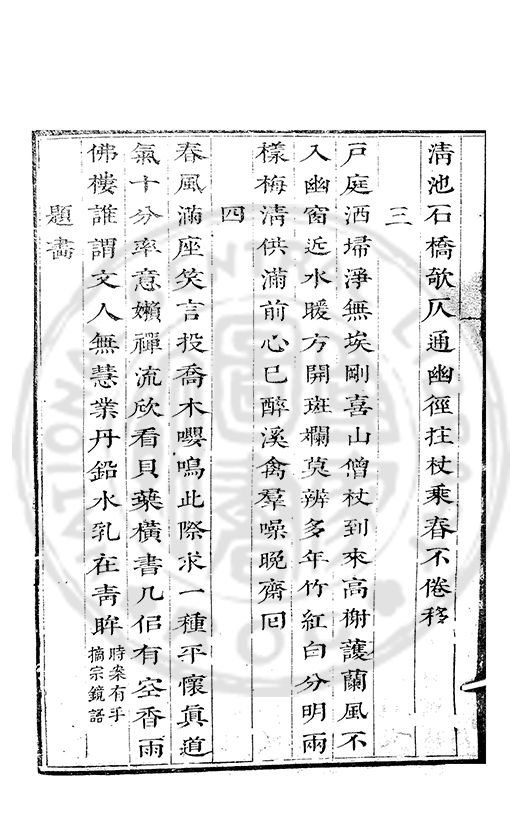 清池石橋欹仄通幽徑拄杖乘春不倦移
三
戸庭洒埽淨無埃剛喜山僧杖到來高榭護蘭風不
入幽窗近水暖方開斑斕莫辨多年竹紅白分明兩
樣梅淸供滿前心已醉溪禽羣噪晚齋回
四
春風滿座笑言投喬木嚶鳴此際求一種平懷眞道
氣十分率意嬾禪流欣看貝葉橫書几佀有空香雨
佛樓誰謂文人無慧業丹鉛水乳在靑眸時案有手
摘宗鏡語
題畵